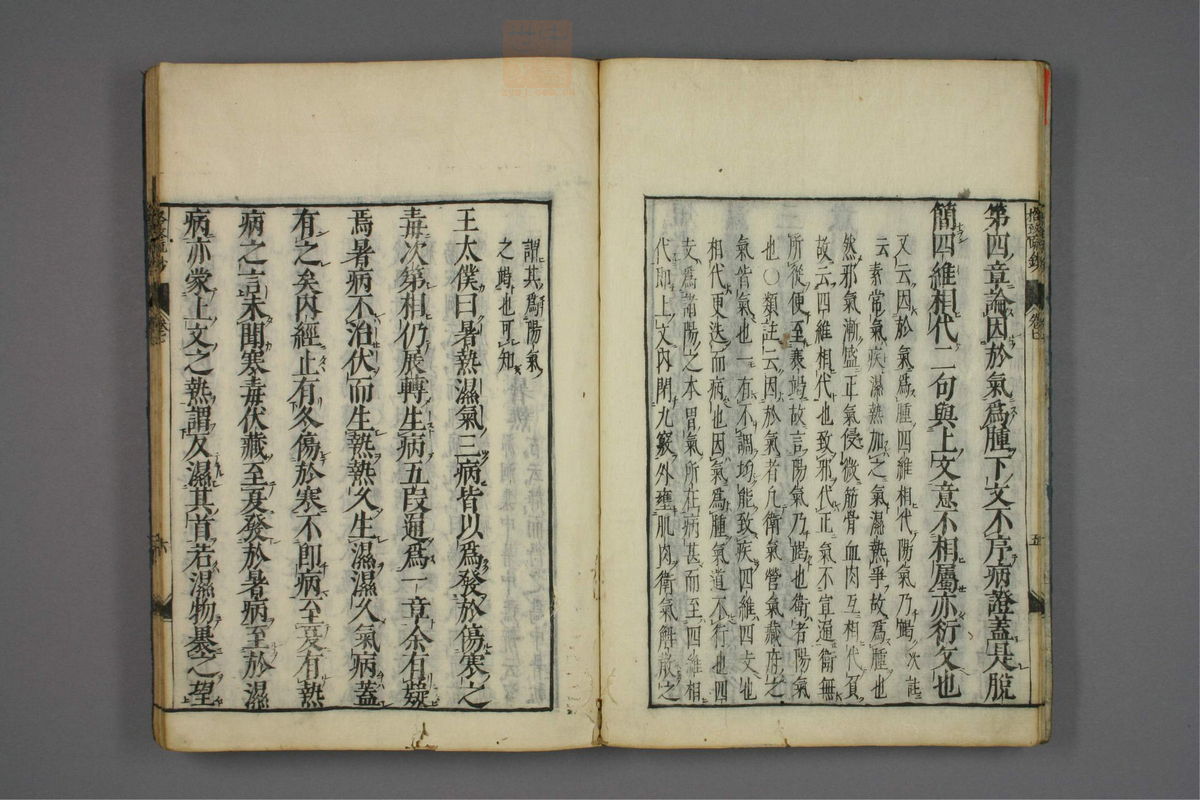 第四章論因於氣爲腫下文不序病證蓋是脫
簡四維相代二句與上文意不相屬亦衍文也
又云因於氣爲腫四維相代陽氣乃竭次註
云素常氣疾濕熱加之氣濕熱爭故爲腫也
然邪氣漸盛正氣侵微筋骨血肉互相代負
故云四維相代也致邪代正氣不宣通衛無
所從便至衰竭故言陽氣乃竭也衛者陽氣
也〇類註云因於氣者凡衛氣營氣藏府之
氣皆氣也一有不調均能致疾四維四支也
相代更迭而病也因氣爲腫氣道不行也四
支爲諸陽之本胃氣所在病甚而至四維相
代即上文內閉九竅外壅肌肉衛氣解散之
謂其爲陽氣
之竭也可知
王太僕曰暑熱濕氣三病皆以爲發於傷寒之
毒次第相仍展轉生病五段通爲一章余有疑
焉暑病不治伏而生熱熱久生濕濕久氣病蓋
有之矣內經止有冬傷於寒不卽病至夏有熱
病之言未聞寒毒伏藏至夏發於暑病至於濕
病亦蒙上文之熱謂反濕其首若濕物裹之望